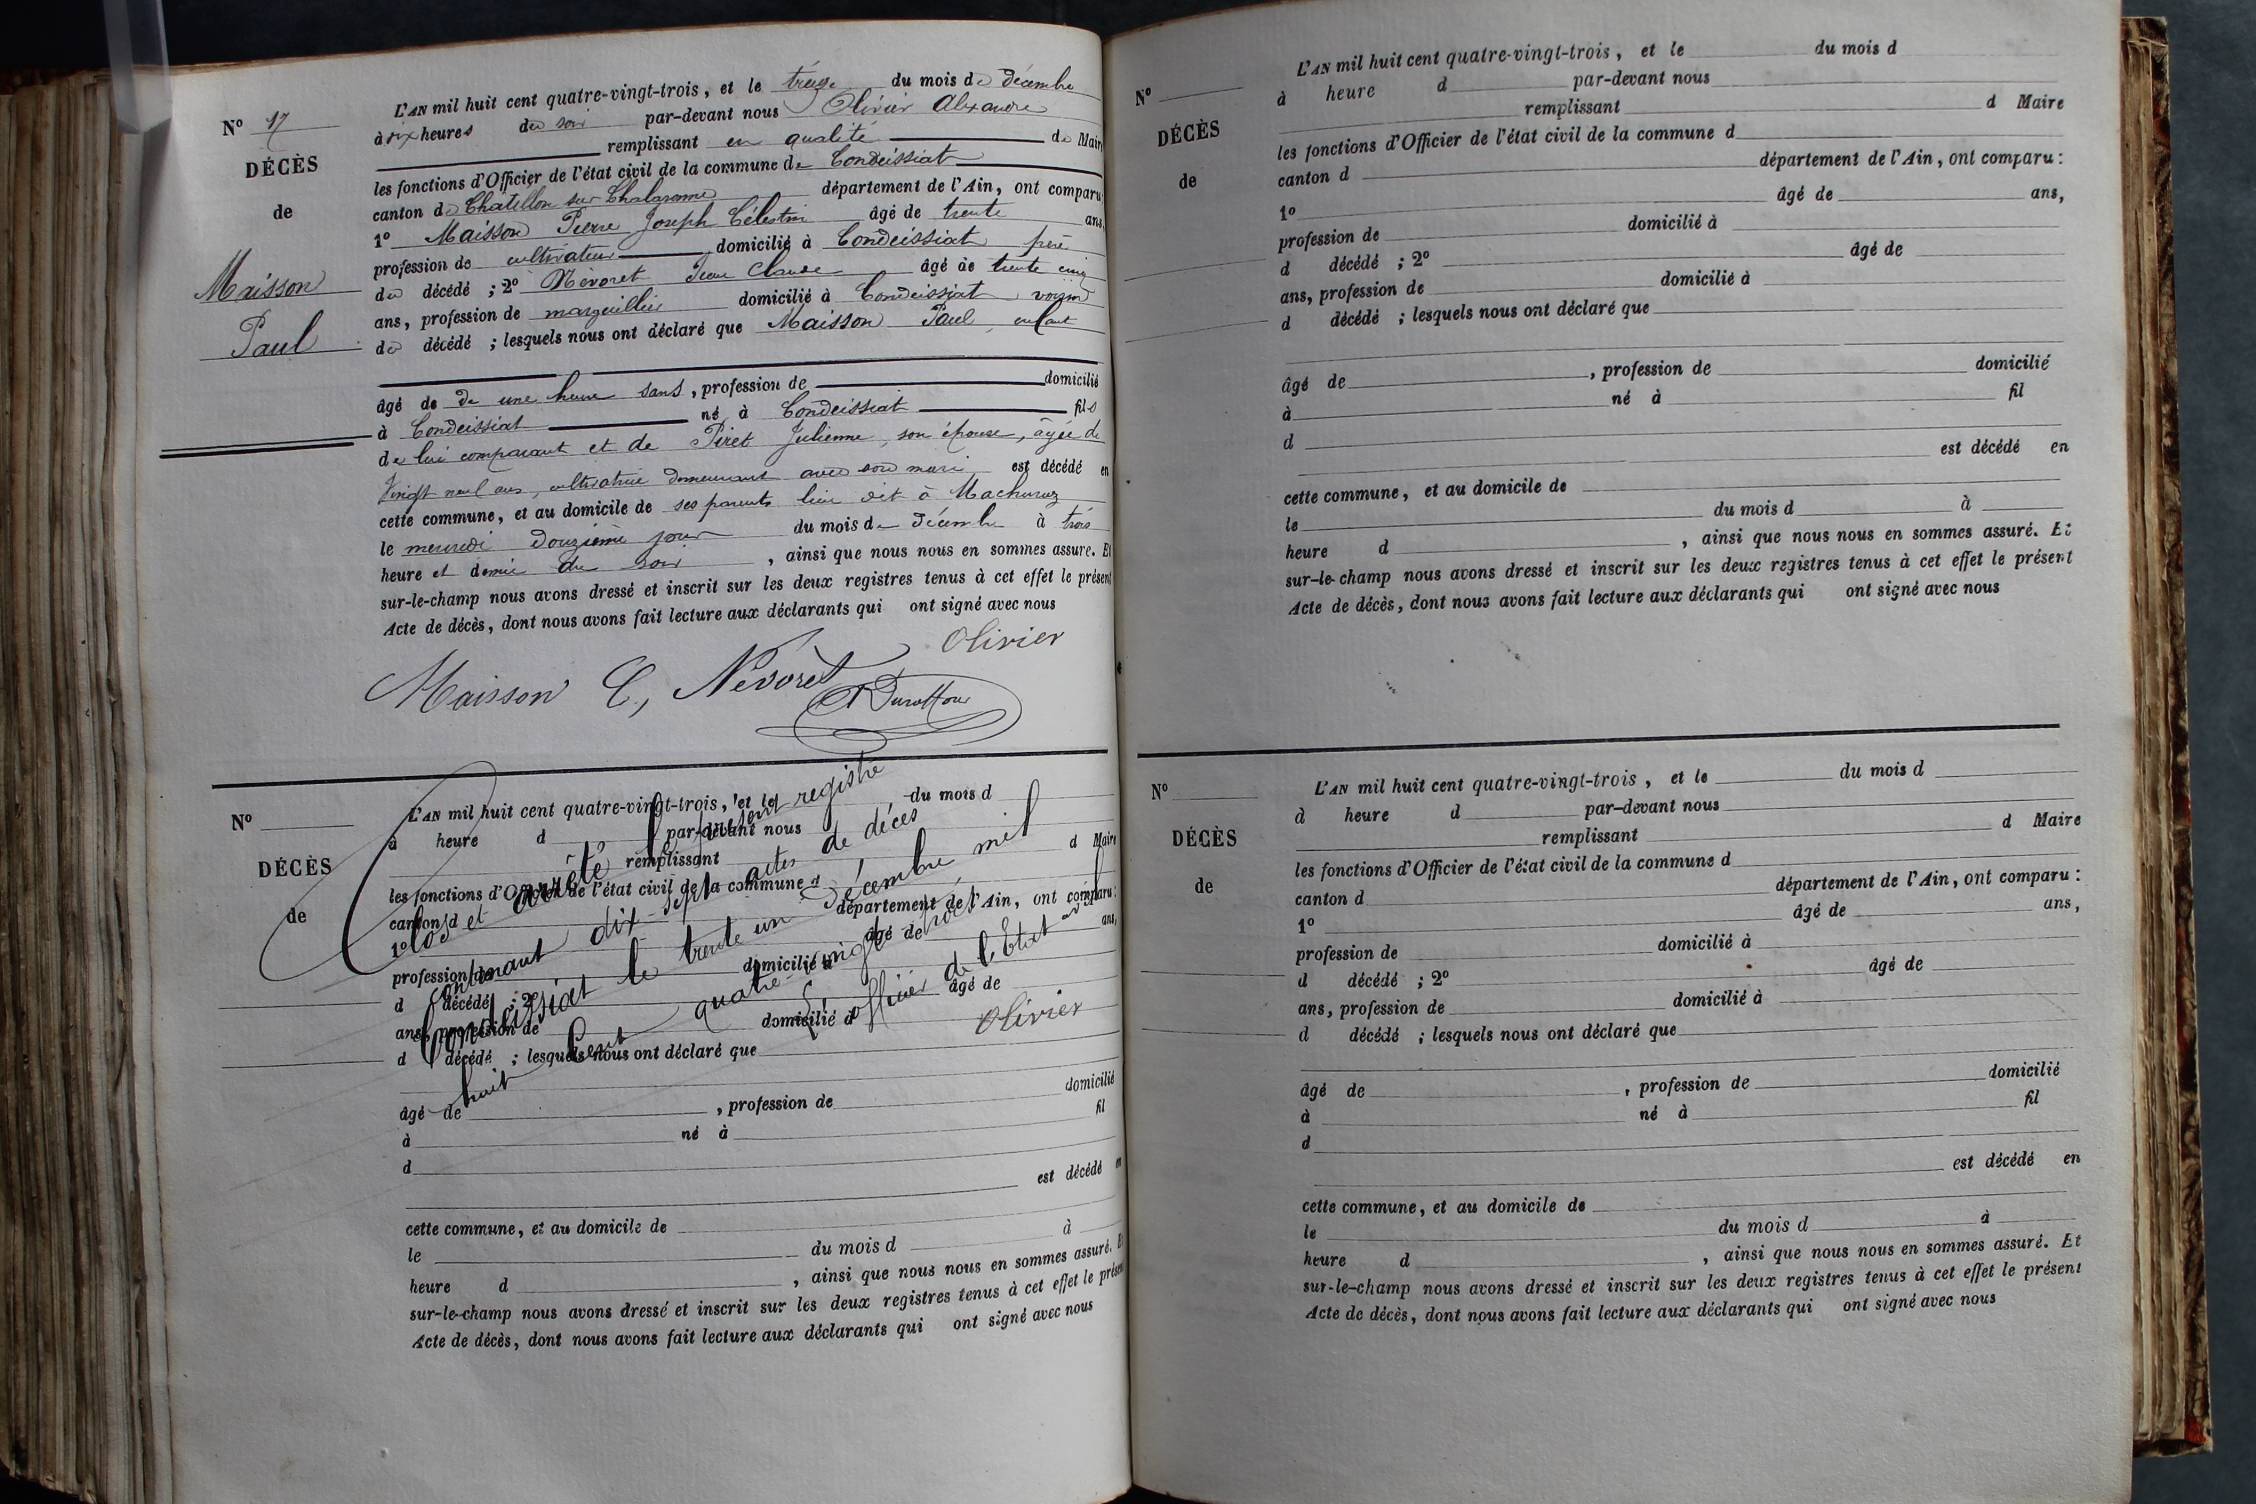 N° 17
DÉCÈS
de
Maisson
Paul
L'AN mil huit cent quatre-vingt-trois, et le treize du mois de décembre
à six heures du soir par-devant nous Olivier Alexandre
remplissant en qualité de Maire
les fonctions d'Officier de l'état civil de la commune de Condeissiat
canton de Chatillon sur Chalaronne département de l'Ain, ont comparu
1° Maisson Pierre Joseph Célestin âgé de trente ans,
profession de cultivateur domicilié à Condeissiat père
du décédé ; 2° Névoret Jean Claude âgé de trente cinq
ans, profession de marguillier domicilié à Condeissiat voisin
du décédé ; lesquels nous ont déclaré que Maisson Paul, enfant
âgé de de une heure sans, profession de domicilié
à Condeissiat né à Condeissiat fils
de lui comparant et de Piret Julienne, son épouse, âgée de
vingt neuf ans, cultivatrice demeurant avec son mari est décédé en
cette commune, et au domicile de ses parents lieu dit à Machuraz
le mercredi douzième jour du mois de décembre à trois
heure et demie du soir, ainsi que nous nous en sommes assuré. Et
sur-le-champ nous avons dressé et inscrit sur les deux registres tenus à cet effet le présent
Acte de décès, dont nous avons fait lecture aux déclarants qui ont signé avec nous
Olivier
Maisson C, Névoret
N°
DÉCÈS
de
L'AN mil huit cent quatre-vingt-trois, et le du mois d
à heure d par-devant nous
remplissant d Maire
les fonctions d'Officier de l'état civil de la commune d
canton d département de l'Ain, ont comparu :
1° âgé de ans,
profession de domicilié à
d décédé ; 2° âgé de
ans, profession de domicilié à
d décédé ; lesquels nous ont déclaré que
âgé de , profession de domicilié
à né à fil
d
est décédé en
cette commune, et au domicile de
le du mois d à
heure d , ainsi que nous nous en sommes assuré. E
sur-le-champ nous avons dressé et inscrit sur les deux registres tenus à cet effet le présent
Acte de décès, dont nous avons fait lecture aux déclarants qui ont signé avec nous
Clos et arrêté le présent registre
contenant dix-sept actes de décès
Condeissiat le trente un décembre mil
huit cent quatre-vingt trois
L'officier de l'Etat civil
Olivier
N°
DÉCÈS
de
L'AN mil huit cent quatre-vingt-trois, et le du mois d
à heure d par-devant nous
remplissant d Maire
les fonctions d'Officier de l'état civil de la commune d
canton d département de l'Ain, ont comparu :
1° âgé de ans,
profession de domicilié à
d décédé ; 2° âgé de
ans, profession de domicilié à
d décédé ; lesquels nous ont déclaré que
âgé de , profession de domicilié
à né à fil
d
est décédé en
cette commune, et au domicile de
le du mois d à
heure d , ainsi que nous nous en sommes assuré. Et
sur-le-champ nous avons dressé et inscrit sur les deux registres tenus à cet effet le présent
Acte de décès, dont nous avons fait lecture aux déclarants qui ont signé avec nous
N°
DÉCÈS
de
L'AN mil huit cent quatre-vingt-trois, et le du mois d
à heure d par-devant nous
remplissant d Maire
les fonctions d'Officier de l'état civil de la commune d
canton d département de l'Ain, ont comparu :
1° âgé de ans,
profession de domicilié à
d décédé ; 2° âgé de
ans, profession de domicilié à
d décédé ; lesquels nous ont déclaré que
âgé de , profession de domicilié
à né à fil
d
est décédé en
cette commune, et au domicile de
le du mois d à
heure d , ainsi que nous nous en sommes assuré. Et
sur-le-champ nous avons dressé et inscrit sur les deux registres tenus à cet effet le présent
Acte de décès, dont nous avons fait lecture aux déclarants qui ont signé avec nous